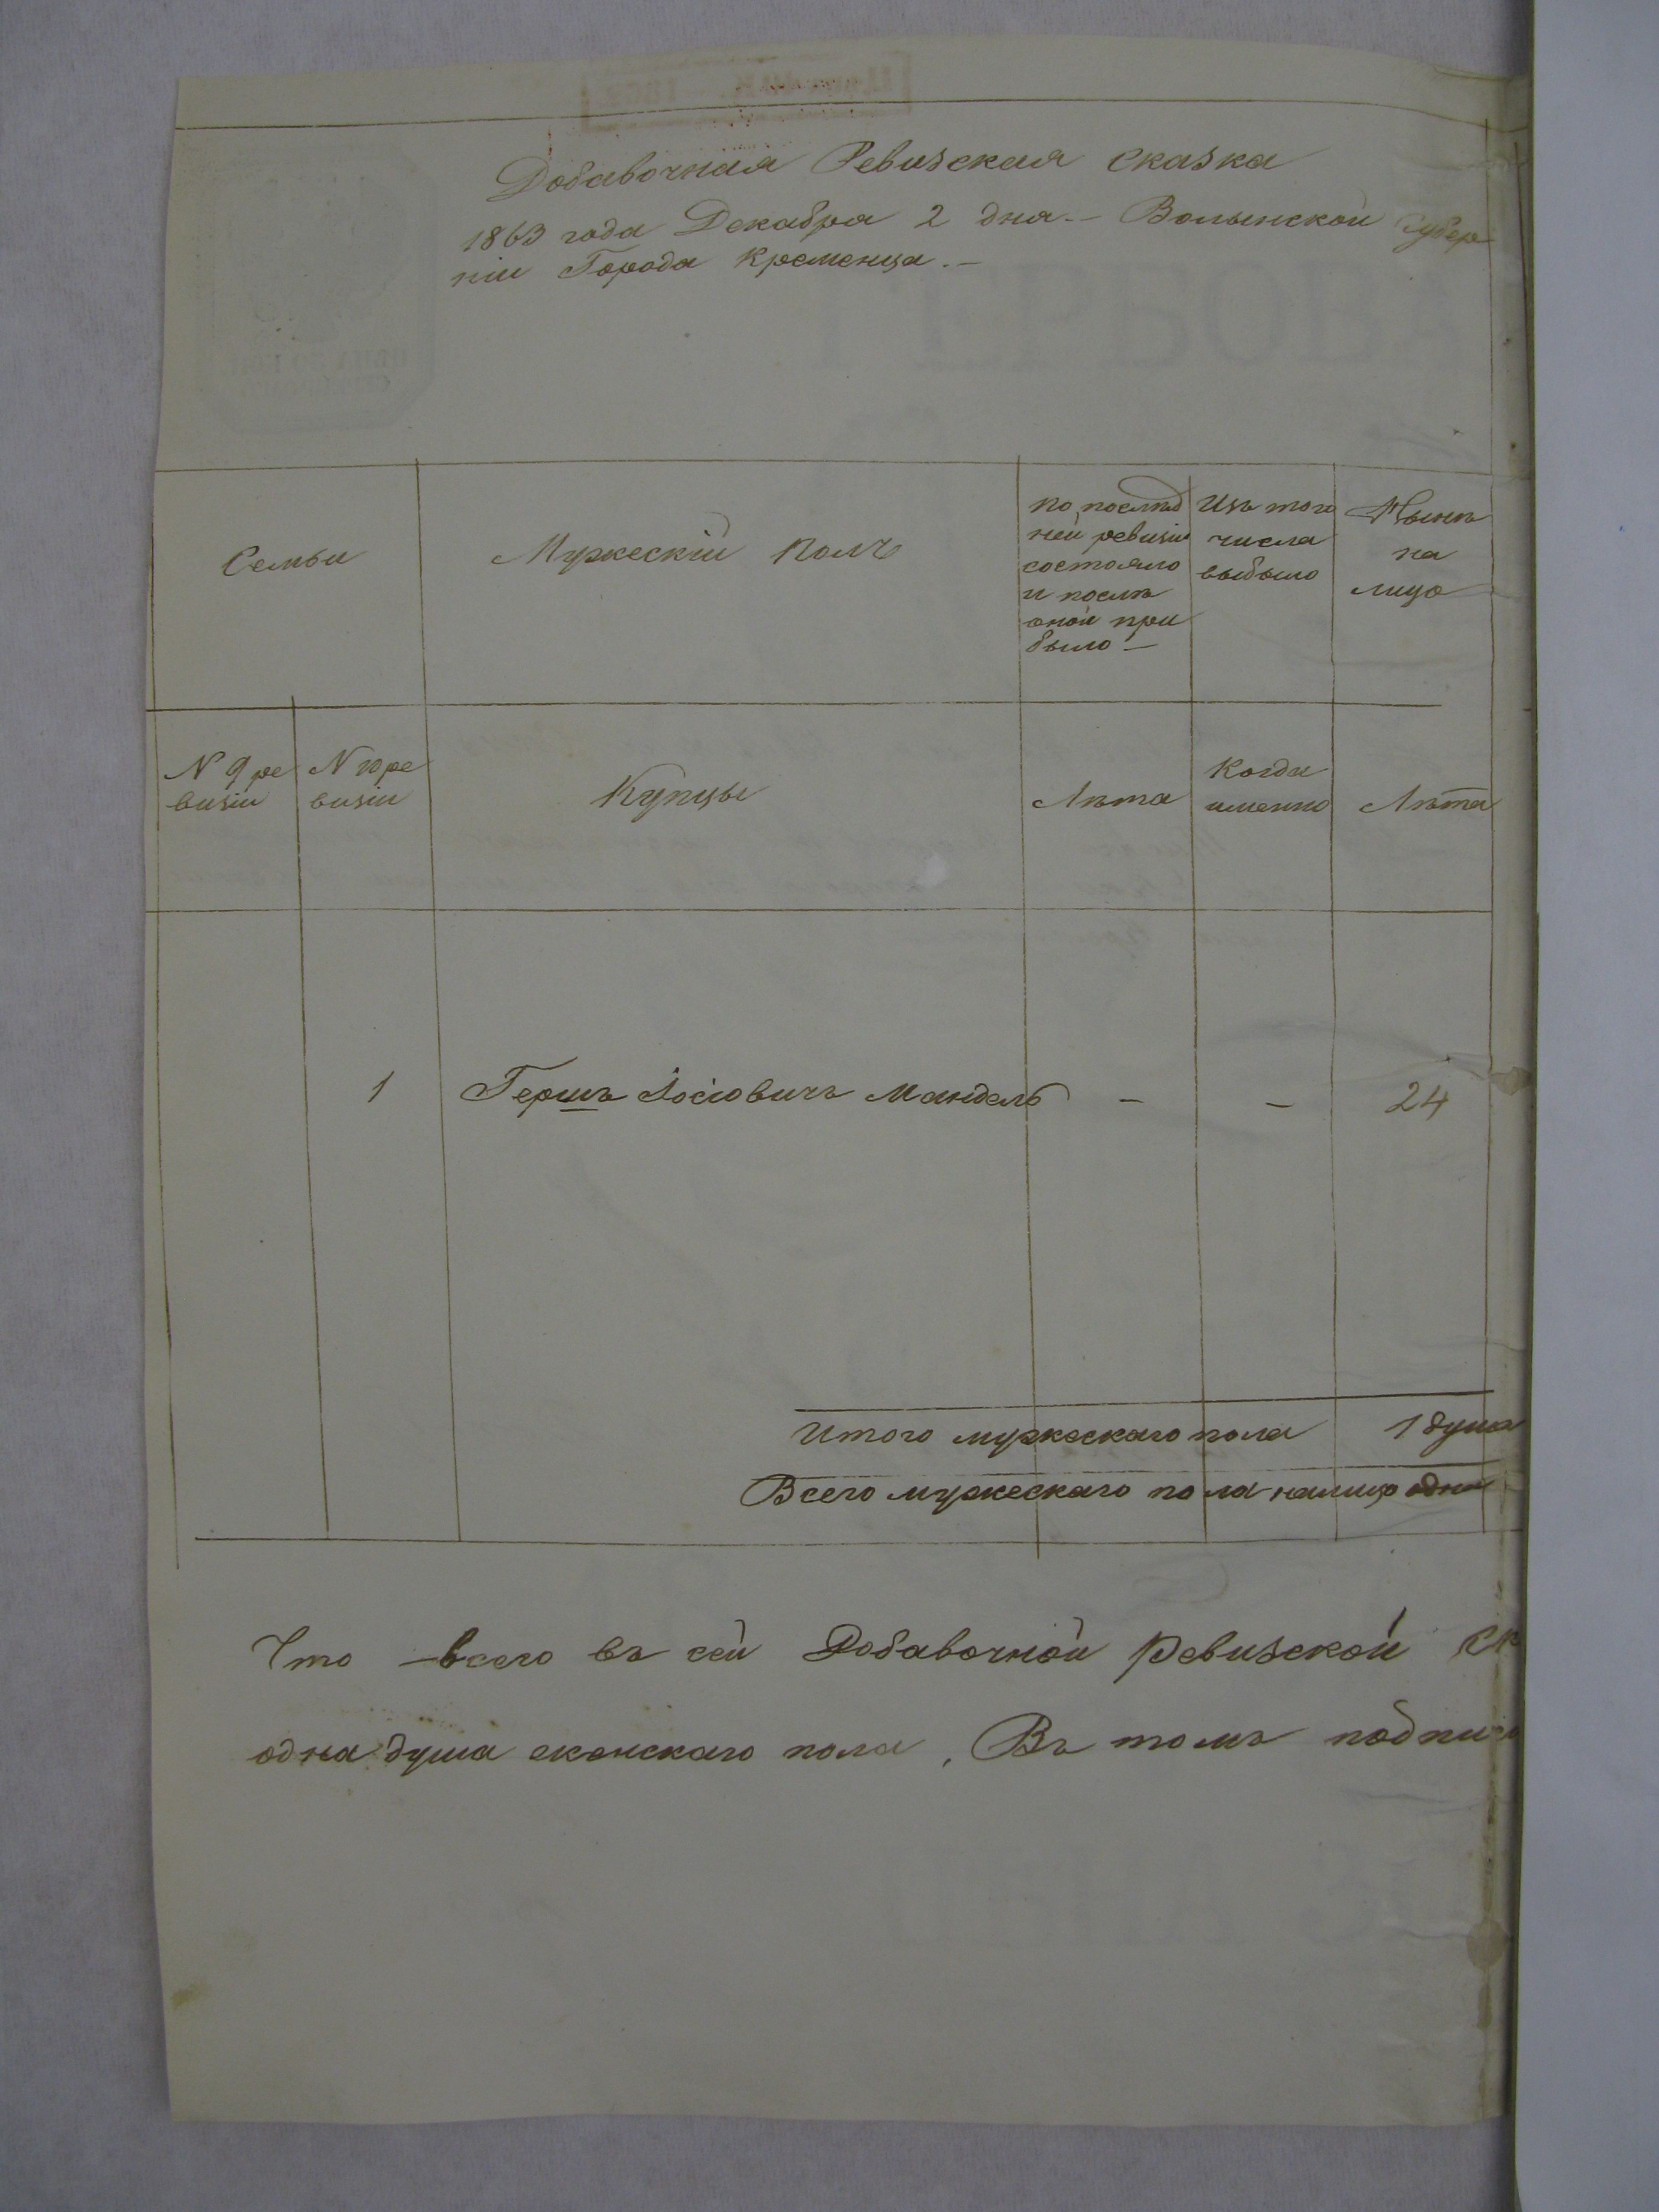 Добавочная Ревизская Сказка
1863 года Декабра 2 дня.— Волынской Губер
ніи Города Кременца.—
Семьи
Мужескій Полъ
по послѣд
ней ревизіи
состояло
и послѣ
оной при
было —
Изъ того
числа
выбыло
Нынѣ
на
лицо
N 9 ре
визіи
N 10 ре
визіи
Купцы
Лѣта
Когда
именно
Лѣта
1 Гершъ Іосіовичъ Мандель — — 24
Итого мужескаго пола 1 душа
Всего мужескаго пола налицо одна
Что — всего въ сей Добавочной Ревизской Ск
одна душа женскаго пола, Въ томъ подпис